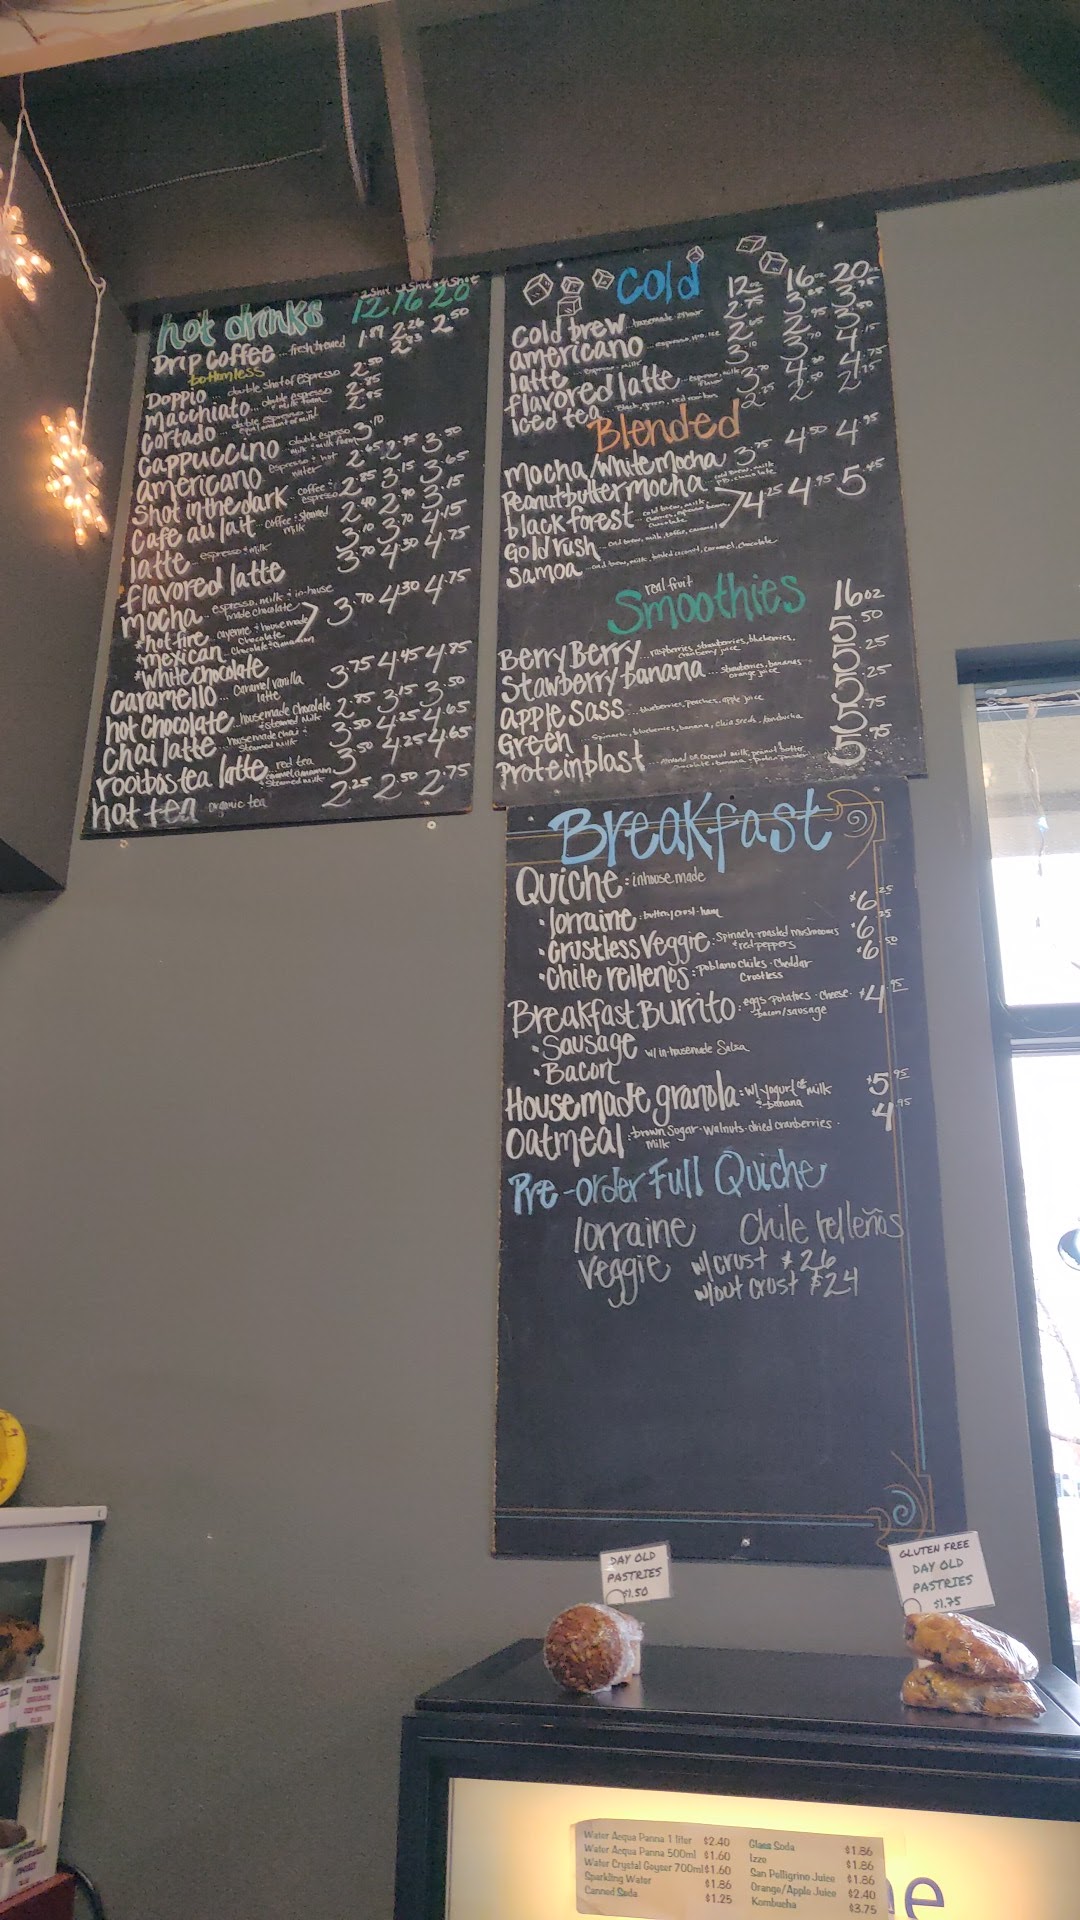 hot drinks 12 16 20
Drip coffee ... fresh brewed 1.89 2.26 2.50
bottomless 2.83
Doppio ... double shot of espresso 2.50
Macchiato ... double espresso + milk foam 2.85
Cortado ... double espresso w/ equal amount of milk 2.85
Cappuccino double espresso milk + milk foam 3.10
americano espresso + hot water 2.65 2.95 3.50
Shot in the dark coffee + espresso 2.85 3.15 3.65
Cafe au lait ... coffee + steamed milk 2.40 2.90 3.15
latte espresso + milk 3.10 3.70 4.15
flavored latte 3.70 4.30 4.75
mocha espresso, milk + in-house made chocolate
*hot fire cayenne + housemade chocolate 3.70 4.30 4.75
*mexican chocolate + cinnamon
*White chocolate
Caramello ... caramel vanilla latte 3.75 4.45 4.85
hot Chocolate .. housemade chocolate + steamed milk 2.85 3.15 3.50
Chai latte housemade chai + steamed milk 3.50 4.25 4.65
rooibos tea latte red tea caramel, cinnamon + steamed milk 3.50 4.25 4.65
hot tea organic tea 2.25 2.50 2.75
Cold 12oz 16oz 20oz
Cold brew 2.75
americano ... espresso, 2.65 2.95 3.50
latte ... espresso + milk 3.10 3.70 4.15
flavored latte ... espresso, milk flavor 3.70 4.30 4.75
Iced tea ... Black, green, red 2.25 2.50 2.75
Blended
Mocha/White Mocha 3.75 4.50 4.95
Peanut butter Mocha ... cold brew, milk
black forest ... cold brew, milk, chocolate 4.25 4.95 5.45
Gold rush ... cold brew, milk, toffee, caramel
Samoa ... cold brew, milk, coconut, caramel, chocolate
real fruit
Smoothies 16oz
Berry Berry ... raspberries, strawberries, blueberries, cranberry juice 5.50
Stawberry banana ... strawberries, bananas orange juice 5.25
apple Sass ... blueberries, peaches, apple juice 5.25
Green Spinach, blueberries, banana, chia seeds, kombucha 5.75
Protein blast ... almond or coconut milk, peanut butter chocolate + banana + protein powder 5.75
Breakfast
Quiche: inhouse made
• lorraine: butter/crust · ham $6.25
• Crustless Veggie: Spinach · roasted mushrooms + red peppers $6.25
• Chile rellenos: Poblano chiles · Cheddar Crustless $6.50
Breakfast Burrito: eggs · Potatoes · cheese · bacon/sausage $4.95
• Sausage w/ in-housemade Salsa
• Bacon
Housemade granola: w/ yogurt or milk + banana $5.95
Oatmeal: brown Sugar · Walnuts · dried cranberries · Milk $4.95
Pre-order Full Quiche
lorraine Chile relleños
Veggie w/crust $26
w/out crust $24
DAY OLD
PASTRIES
$1.50
GLUTEN FREE
DAY OLD
PASTRIES
$1.75
Water Acqua Panna 1 liter $2.40
Water Acqua Panna 500ml $1.60
Water Crystal Geyser 700ml $1.60
Sparkling Water $1.86
Canned Soda $1.25
Glass Soda $1.86
Izze $1.86
San Pelligrino Juice $1.86
Orange/Apple Juice $2.40
Kombucha $3.75